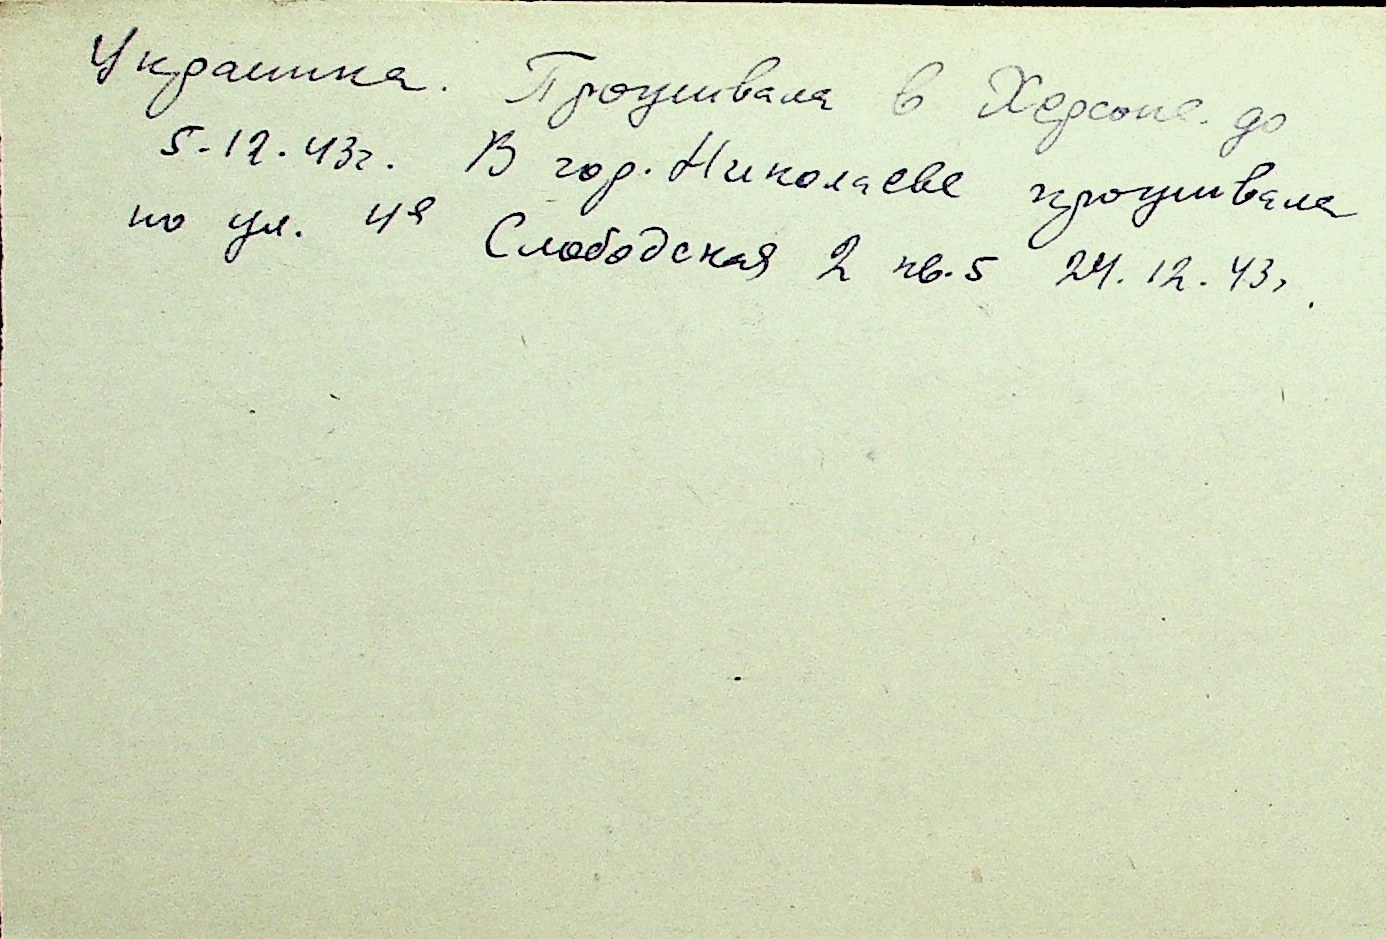 Украинка. Проживала в Херсоне. до
5.12.43г. В гор. Николаеве проживала
по ул. 4я Слободская 2 кв.5 24.12.43г.